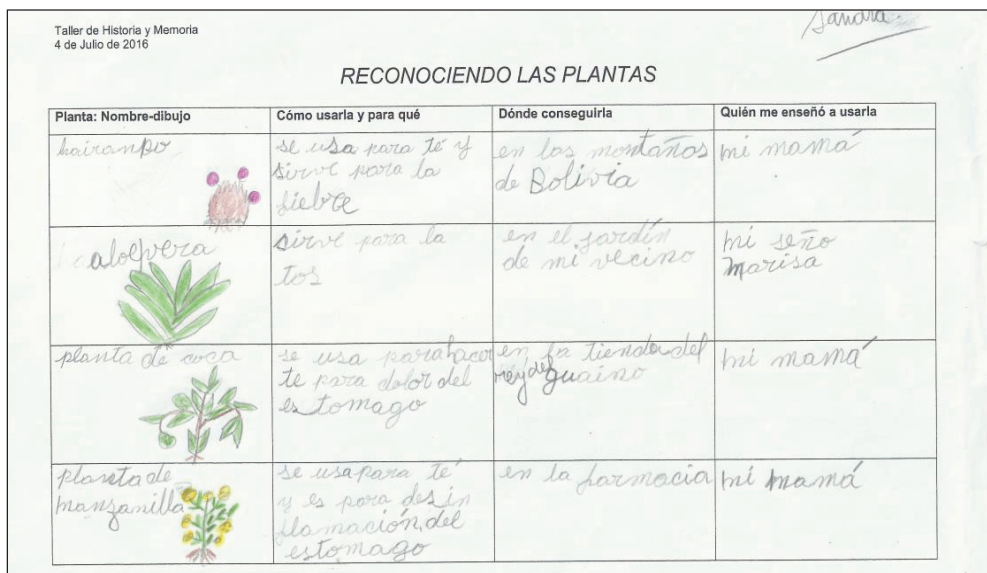 Taller de Historia y Memoria
4 de Julio de 2016
Sandra.
RECONOCIENDO LAS PLANTAS
Planta: Nombre-dibujo
Cómo usarla y para qué
Dónde conseguirla
Quién me enseñó a usarla
hairanpo
se usa para té y
sirve para la
fiebre
en las montañas
de Bolivia
mi mamá
aloevera
sirve para la
tos
en el jardín
de mi vecino
mi seño
Marisa
planta de coca
se usa para hacer
te para dolor del
estomago
en la tienda del
rey del guaino
mi mamá
planta de
manzanilla
se usa para té
y es para des in
flamación del
estomago
en la farmacia
mi mamá